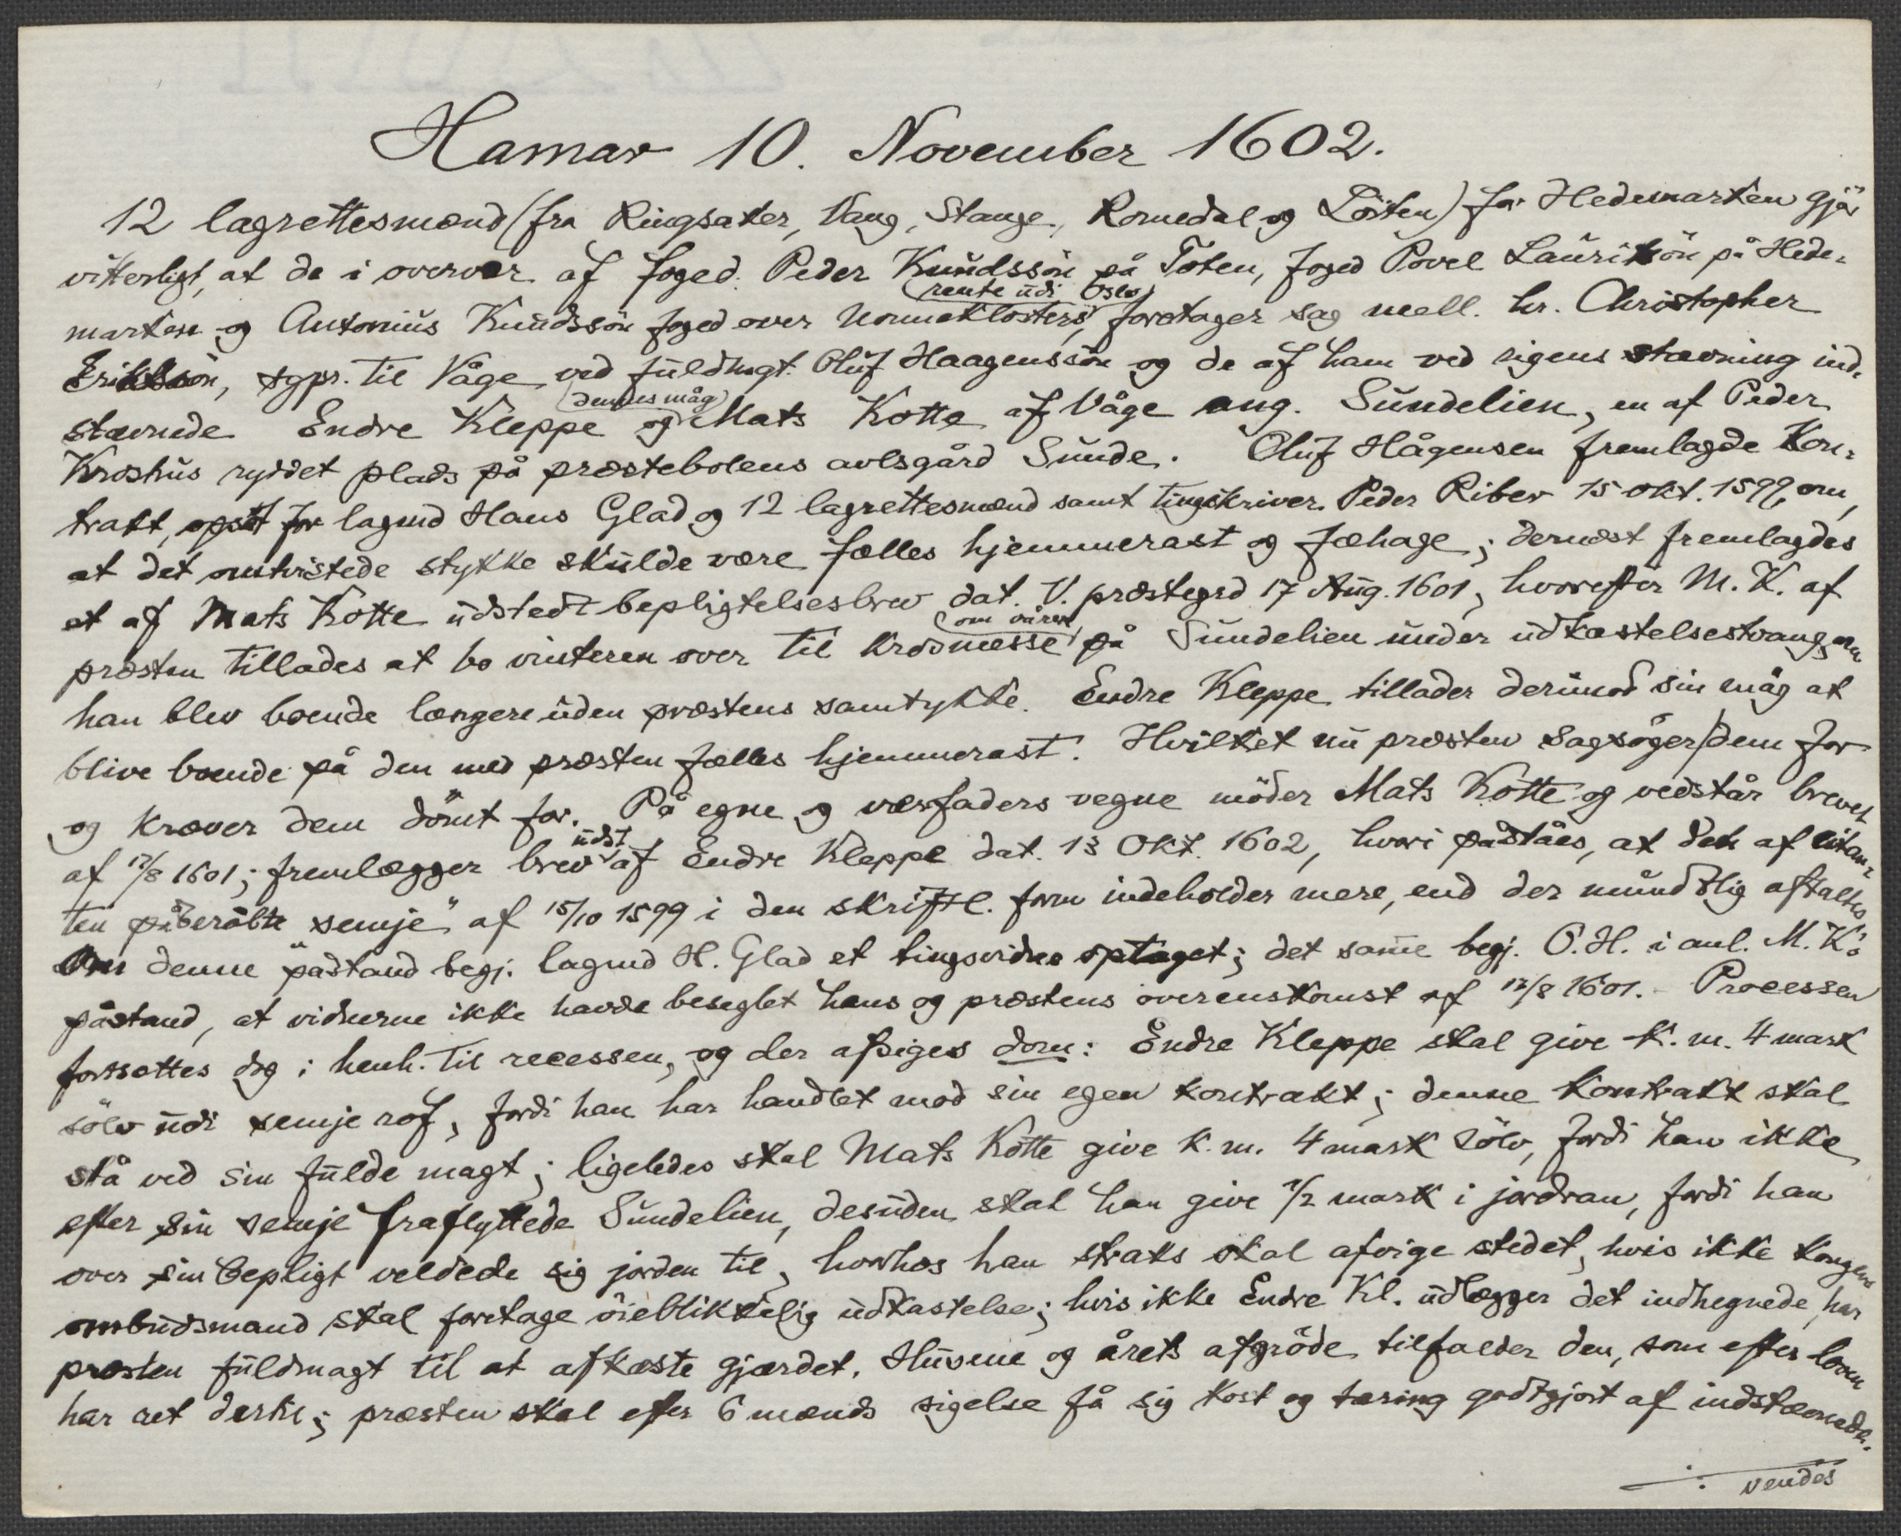 Hamar 10. November 1602.
12 lagrettesmænd (fra Ringsaker, Vang, Stange, Romedal og Löiten) for Hedemarken gjör
vitterligt, at de i overvær af foged Peder Knudssön på Toten, foged Povel Lauritsön på Hede-
marken og Antonius Knudssön foged over Nonneklosters (rente udi Oslo) foretager sag mell. hr. Christopher
Erikssön, sgpr. til Våge ved fuldmgt. Oluf Haagenssön og de af ham ved rigens stævning ind-
stævnede Endre Kleppe og (dennes måg) Mats Kotte af Våge ang. Sundelien, en af Peder
Kroshus ryddet plads på præstebolens avlsgård Sunde. Oluf Hågensen fremlagde kon-
trakt, opsat for lagmd Hans Glad og 12 lagrettesmænd samt tingskriver Peder Riber 15 okt. 1599, om,
at det omtvistede stykke skulde være fælles hjemmerast og fæhage; dernæst fremlagdes
et af Mats Kotte udstedt bepligtelsesbrev dat. V. præstegrd 17 Aug. 1601, hvorefter M. K. af
præsten tillades at bo vinteren over til krosmesse (om våren) på Sundelien under udkastelsestvang, om
han blev boende længere uden præstens samtykke. Endre Kleppe tillader derimod sin måg at
blive boende på den med præsten fælles hjemmerast. Hvilket nu præsten sagsöger dem for
og kræver dem dömt for. På egne og værfaders vegne möder Mats Kotte og vedstår brevet
af 17/8 1601; fremlægger brev udst. af Endre Kleppe dat. 13 Okt. 1602, hvori påståes, at den af citan-
ten påberåbte "semje" af 15/10 1599 i den skriftl. form indeholder mere, end der mundtlig aftaltes.
Om denne påstand begj. lagmd H. Glad et tingsvidne optaget; det samme begj. O. H. i anl. M. K's
påstand, at vidnerne ikke havde beseglet hans og præstens overenskomst af 17/8 1601. - Processen
fortsættes dog i henh. til recessen, og der afsiges dom: Endre Kleppe skal give k. m. 4 mark
sölv udi semje rof, fordi han har handlet mod sin egen kontrakt; denne kontrakt skal
stå ved sin fulde magt; ligeledes skal Mats Kotte give k. m. 4 mark sölv, fordi han ikke
efter sin semje fraflyttede Sundelien, desuden skal han give 1/2 mark i jordran, fordi han
over sin bepligt veldede sig jorden til, hvorhos han straks skal afvige stedet, hvis ikke kongens
ombudsmand skal foretage öieblikkelig udkastelse; hvis ikke Endre Kl. udlægger det indhegnede, har
præsten fuldmagt til at afkaste gjærdet. Husene og årets afgröde tilfalder den, som efter loven
har ret dertil; præsten skal efter 6 mænds sigelse få sig kost og tæring godtgjort af indstævnede.
vendes